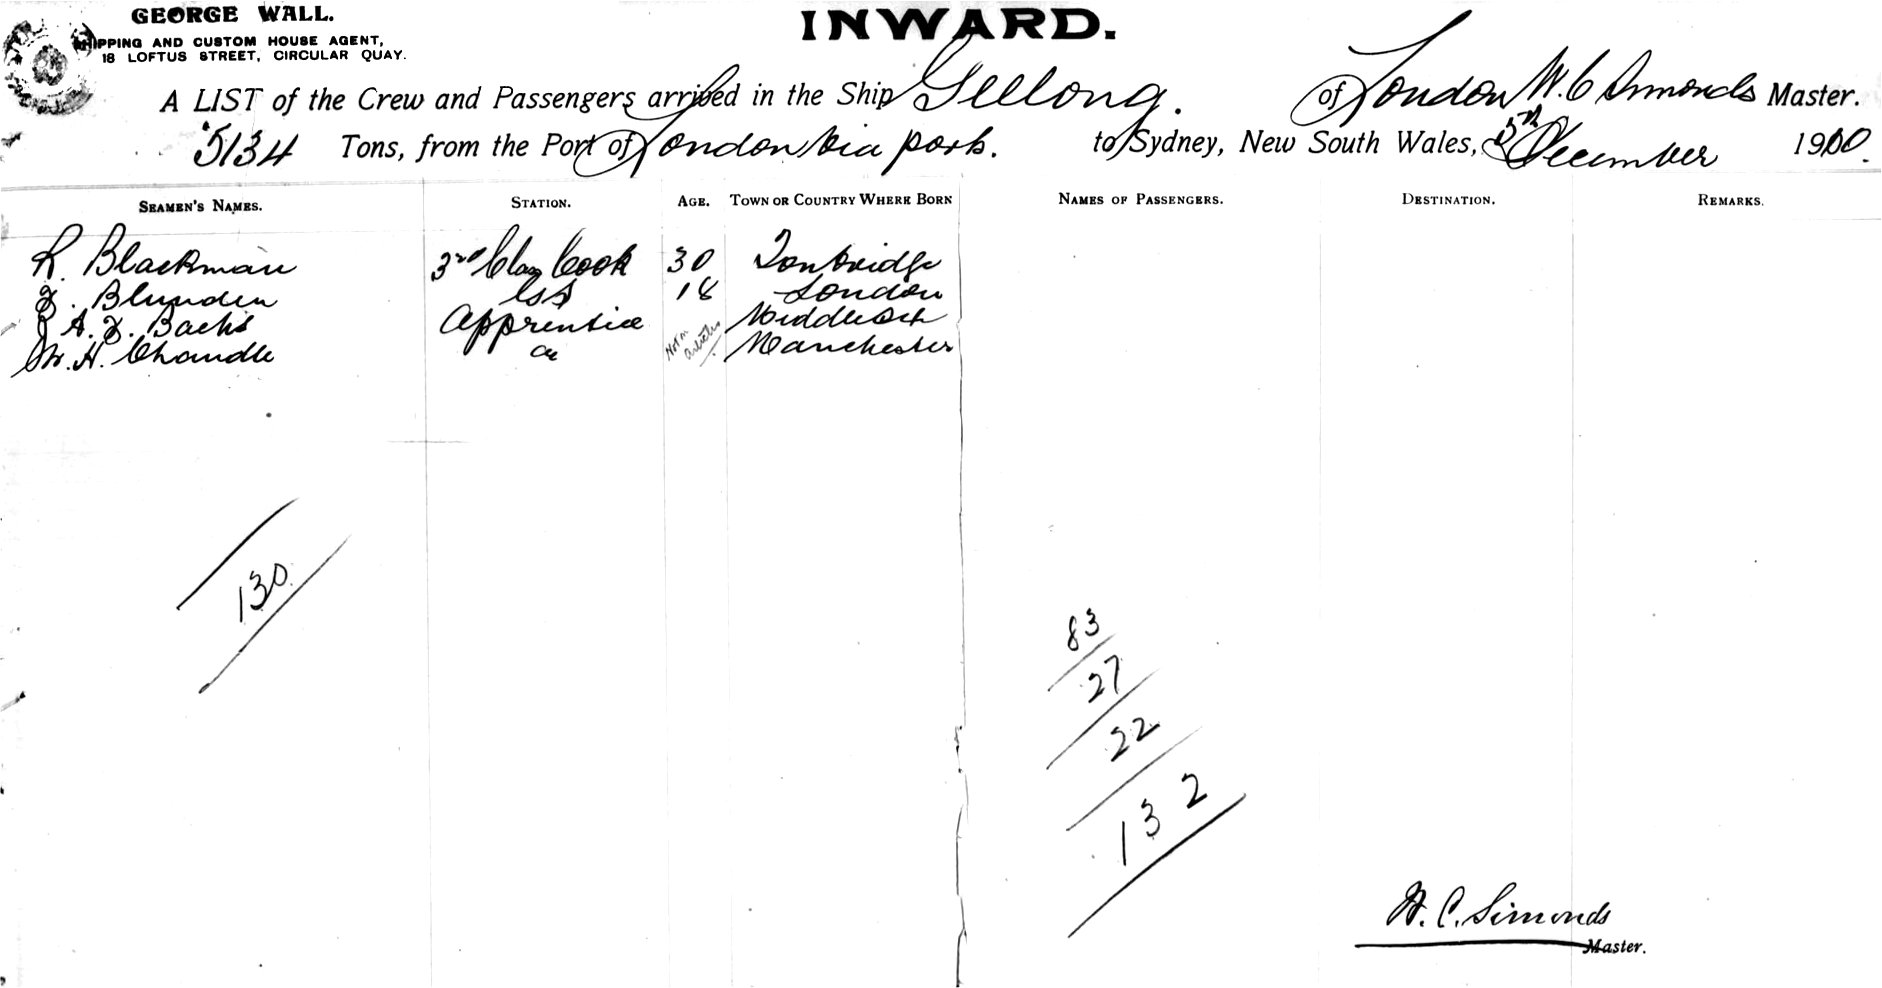 GEORGE WALL.
SHIPPING AND CUSTOM HOUSE AGENT,
18 LOFTUS STREET, CIRCULAR QUAY.
INWARD.
A LIST of the Crew and Passengers arrived in the Ship Geelong. of London W. C Simonds Master.
5134 Tons, from the Port of London via ports. to Sydney, New South Wales, 5th December 1910.
SEAMEN'S NAMES. STATION. AGE. TOWN OR COUNTRY WHERE BORN NAMES OF PASSENGERS. DESTINATION. REMARKS.
R. Blackman 3rd Class Cook 30 Tonbridge
F. Blunden 18 London
A. F. Apprentice Not on Articles
W. H. Manchester
130
83
27
22
132
W. C. Simonds
Master.